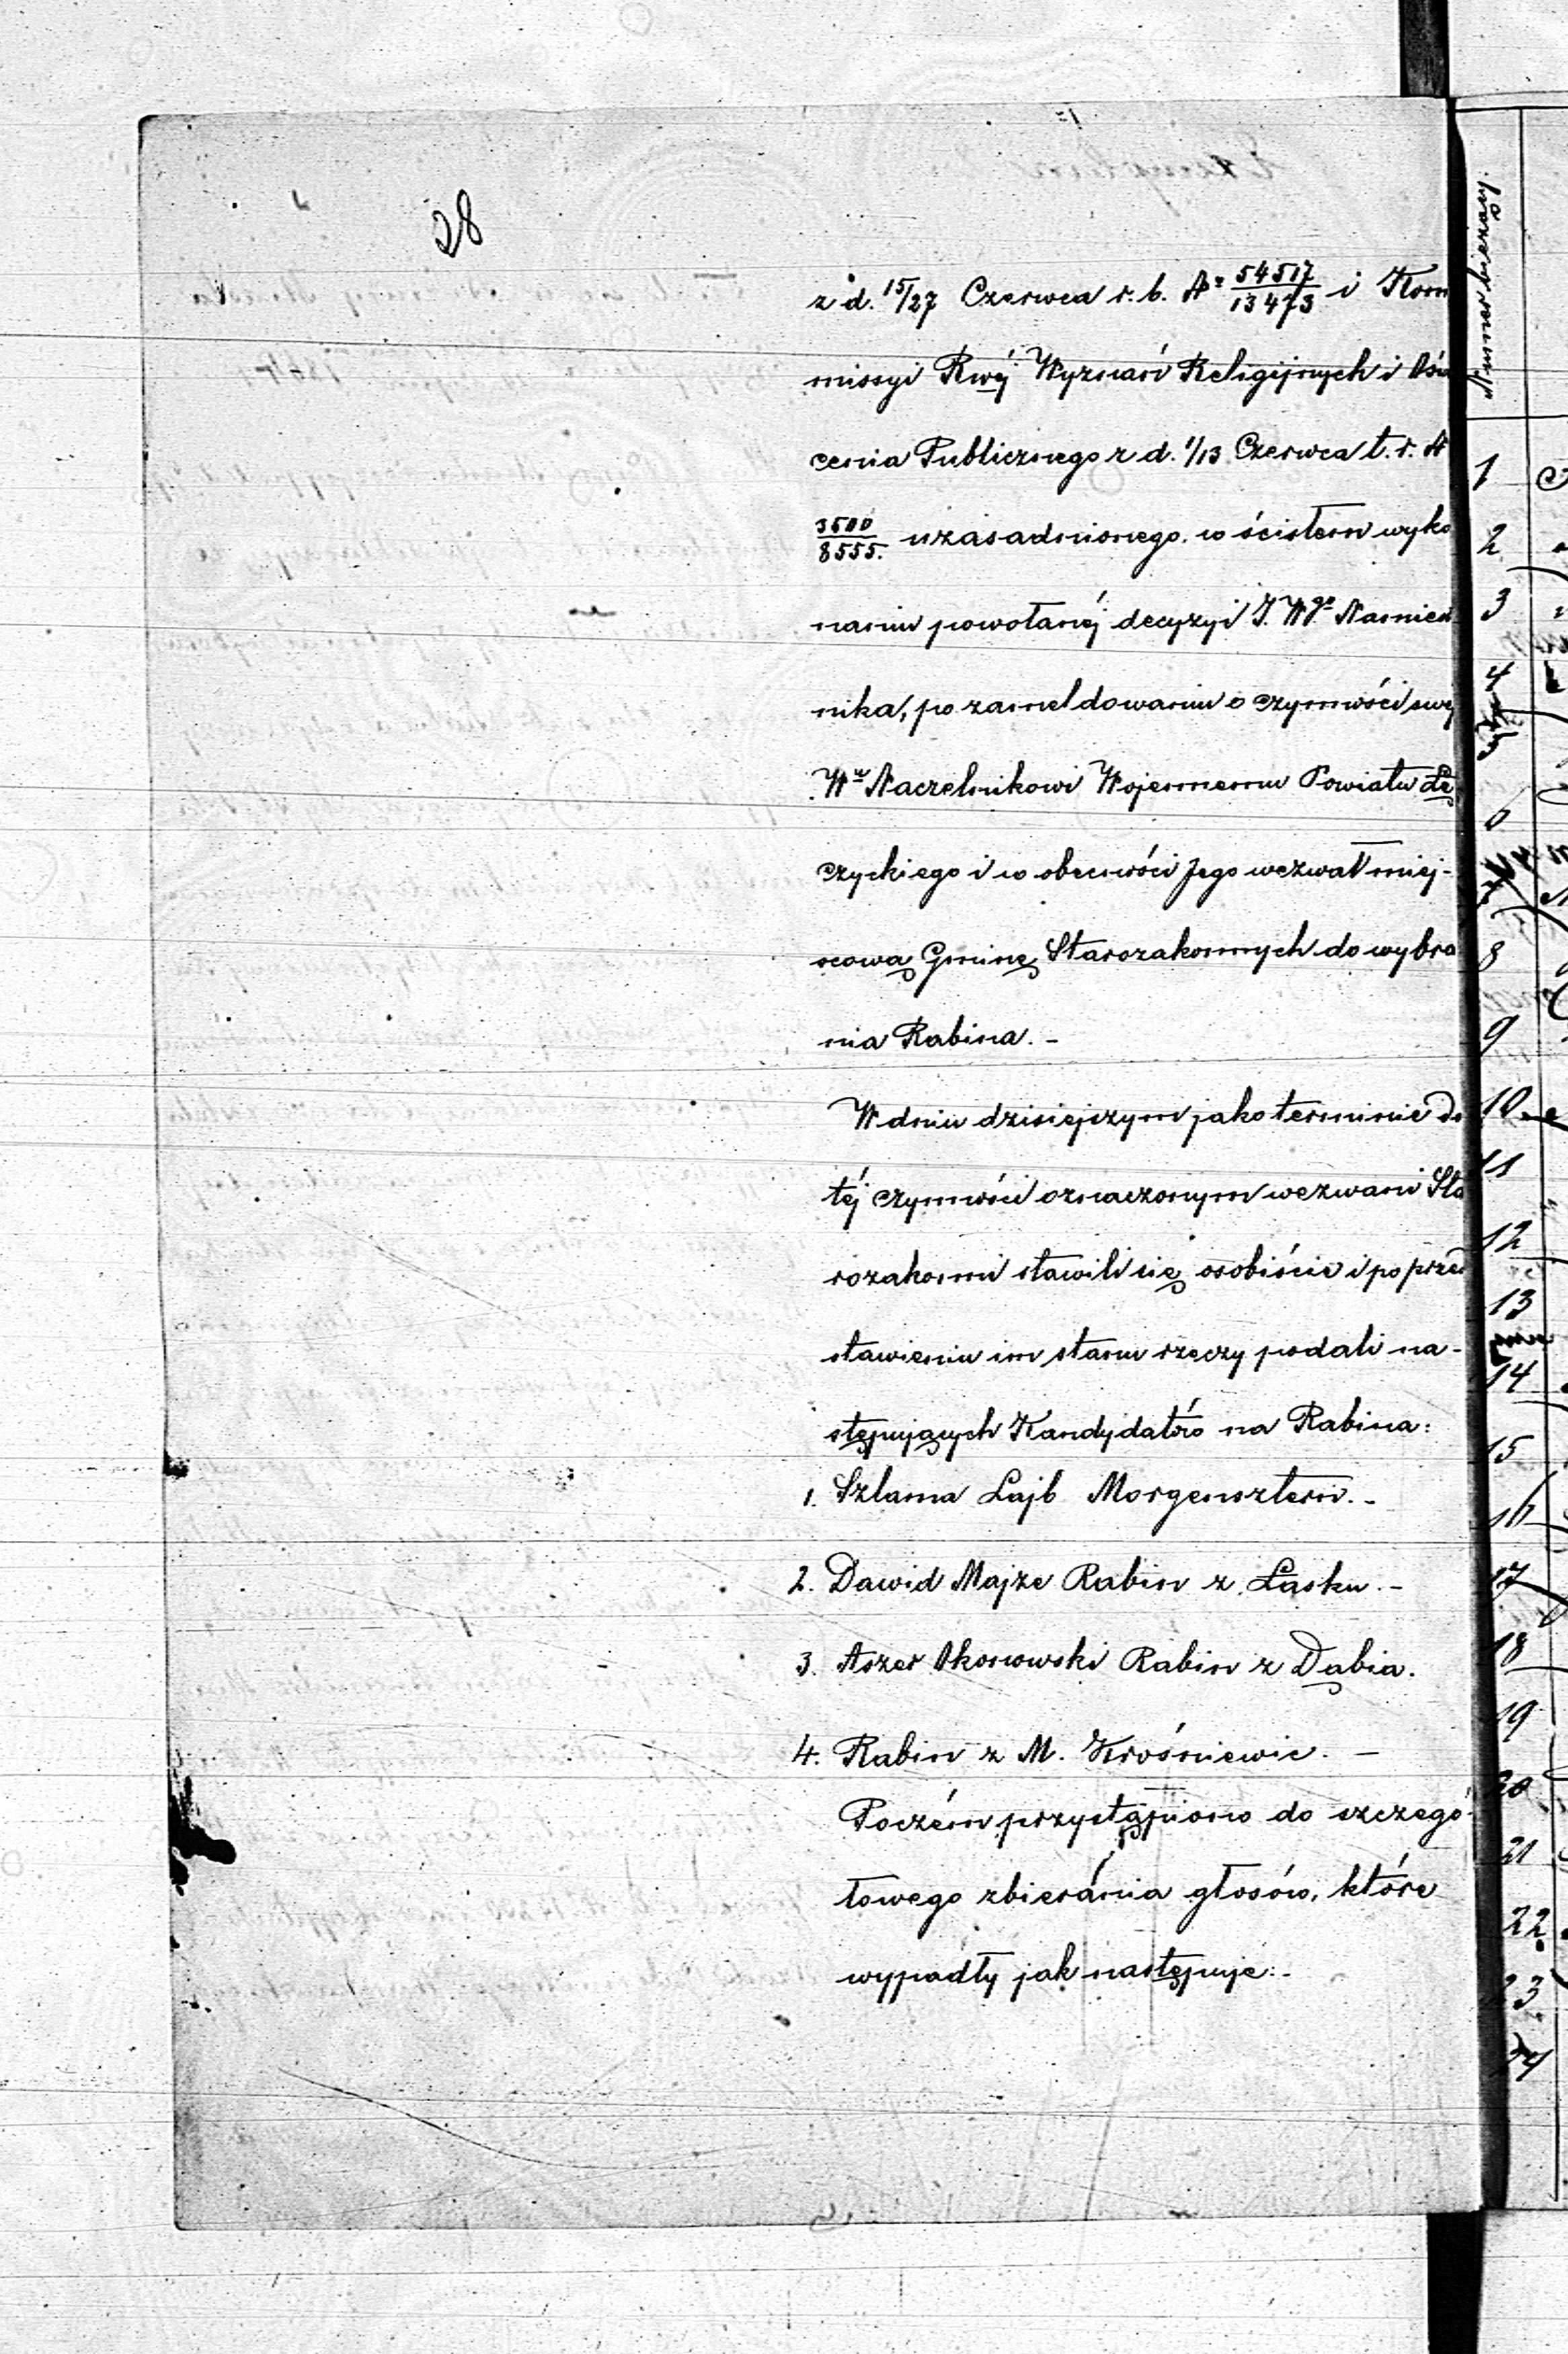 28
z d. 15/27 Czerwca r. b. № 54517/13473 i Kom
missyi Rwéj Wyznań Religijnych i Ośw
cenia Publicznego z d. 1/13 Czerwca t. r. №
3500/8555. uzasadnionego. w ścisłem wyko
naniu powołanéj decyzyi J. Wgo Namiest
nika, po zameldowaniu o czynności swej
Wu Naczelnikowi Wojennemu Powiatu Łę
czyckiego i w obecności Jego wezwał miej-
scową Gminę Starozakonnych do wybra
nia Rabina. -
W dniu dzisiejszym jako terminie do
téj czynności oznaczonym wezwani Sta
rozakonni stawili się osobiście i po przed
stawieniu im stanu rzeczy podali na-
stępujących Kandydatów na Rabina:
1. Szlama Lajb Morgensztern. -
2. Dawid Majze Rabin z Łasku. -
3. Aszer Okonowski Rabin z Dąbia.
4. Rabin z M. Krośniewic. -
Poczém przystąpiono do szczegó
łowego zbierania głosów, które
wypadły jak następuje: -
1
2
3
4
5
6
7
8
9
10
11
12
13
14
15
16
17
18
19
20
21
22
23
24